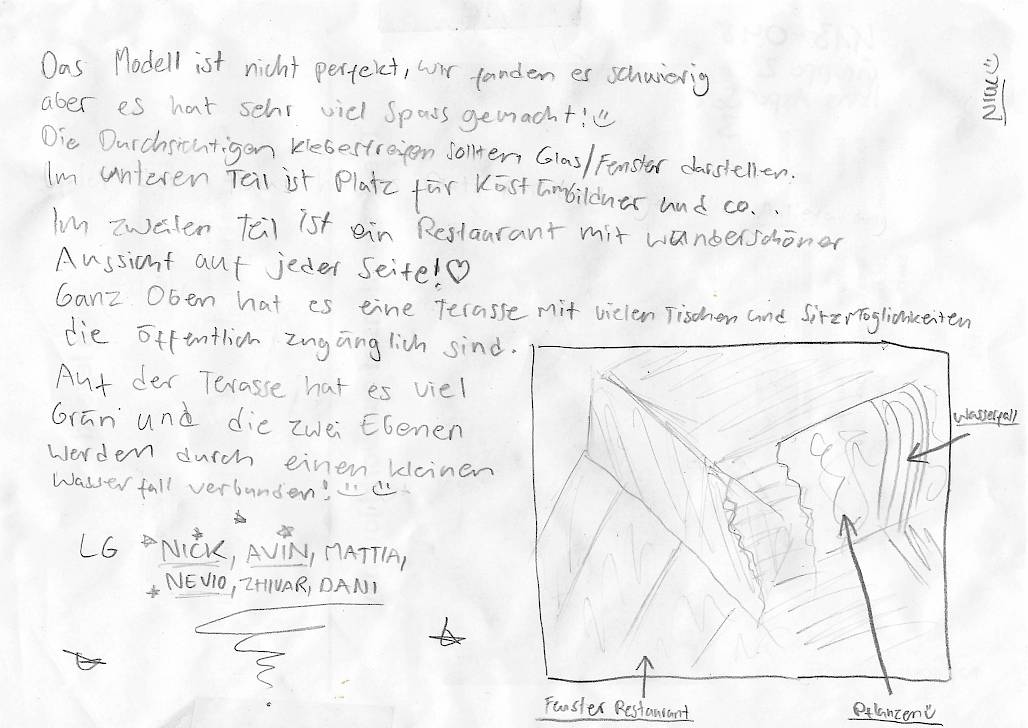 Das Modell ist nicht perfekt, wir fanden es schwierig
aber es hat sehr viel Spass gemacht!
Die Durchsichtigen Klebestreifen sollten Glas/Fenster darstellen.
Im unteren Teil ist Platz für Kostümbildner und co..
Im zweiten Teil ist ein Restaurant mit wunderschöner
Aussicht auf jeder Seite!♡
Ganz Oben hat es eine Terasse mit vielen Tischen und Sitzmöglichkeiten
die öffentlich zugänglich sind.
Auf der Terasse hat es viel
Grün und die zwei Ebenen
werden durch einen kleinen
Wasserfall verbunden!
LG NICK, AVIN, MATTIA,
NEVIO, ZHIVAR, DANI
Wasserfall
Fenster Restaurant
Pflanzen